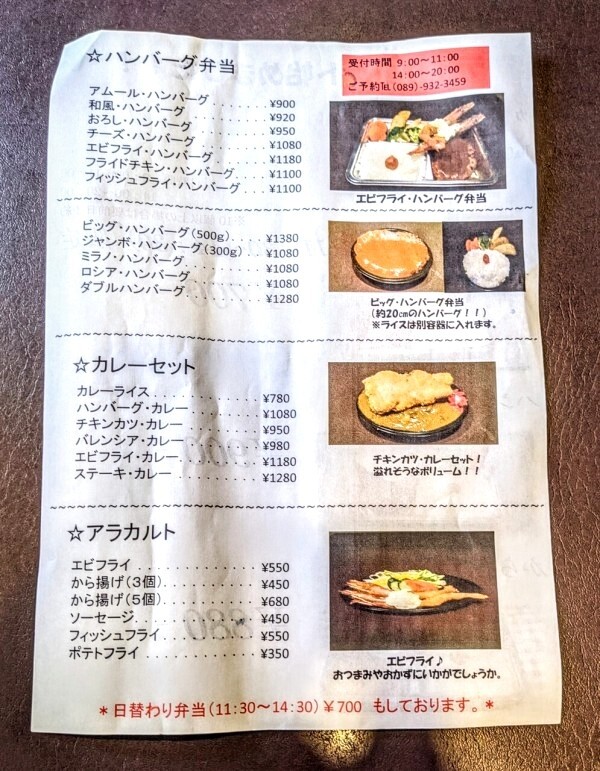 ☆ハンバーグ弁当
受付時間 9:00～11:00
14:00～20:00
ご予約℡(089)-932-3459
アムール・ハンバーグ ¥900
和風・ハンバーグ ¥920
おろし・ハンバーグ ¥950
チーズ・ハンバーグ ¥1080
エビフライ・ハンバーグ ¥1180
フライドチキン・ハンバーグ ¥1100
フィッシュフライ・ハンバーグ ¥1100
エビフライ・ハンバーグ弁当
ビッグ・ハンバーグ(500g) ¥1380
ジャンボ・ハンバーグ(300g) ¥1080
ミラノ・ハンバーグ ¥1080
ロシア・ハンバーグ ¥1080
ダブルハンバーグ ¥1280
ビッグ・ハンバーグ弁当
(約20cmのハンバーグ!!)
※ライスは別容器に入れます。
☆カレーセット
カレーライス ¥780
ハンバーグ・カレー ¥1080
チキンカツ・カレー ¥950
バレンシア・カレー ¥980
エビフライ・カレー ¥1180
ステーキ・カレー ¥1280
チキンカツ・カレーセット!
溢れそうなボリューム!!
☆アラカルト
エビフライ ¥550
から揚げ(3個) ¥450
から揚げ(5個) ¥680
ソーセージ ¥450
フィッシュフライ ¥550
ポテトフライ ¥350
エビフライ♪
おつまみやおかずにいかがでしょうか。
*日替わり弁当(11:30～14:30)¥700 もしております。*